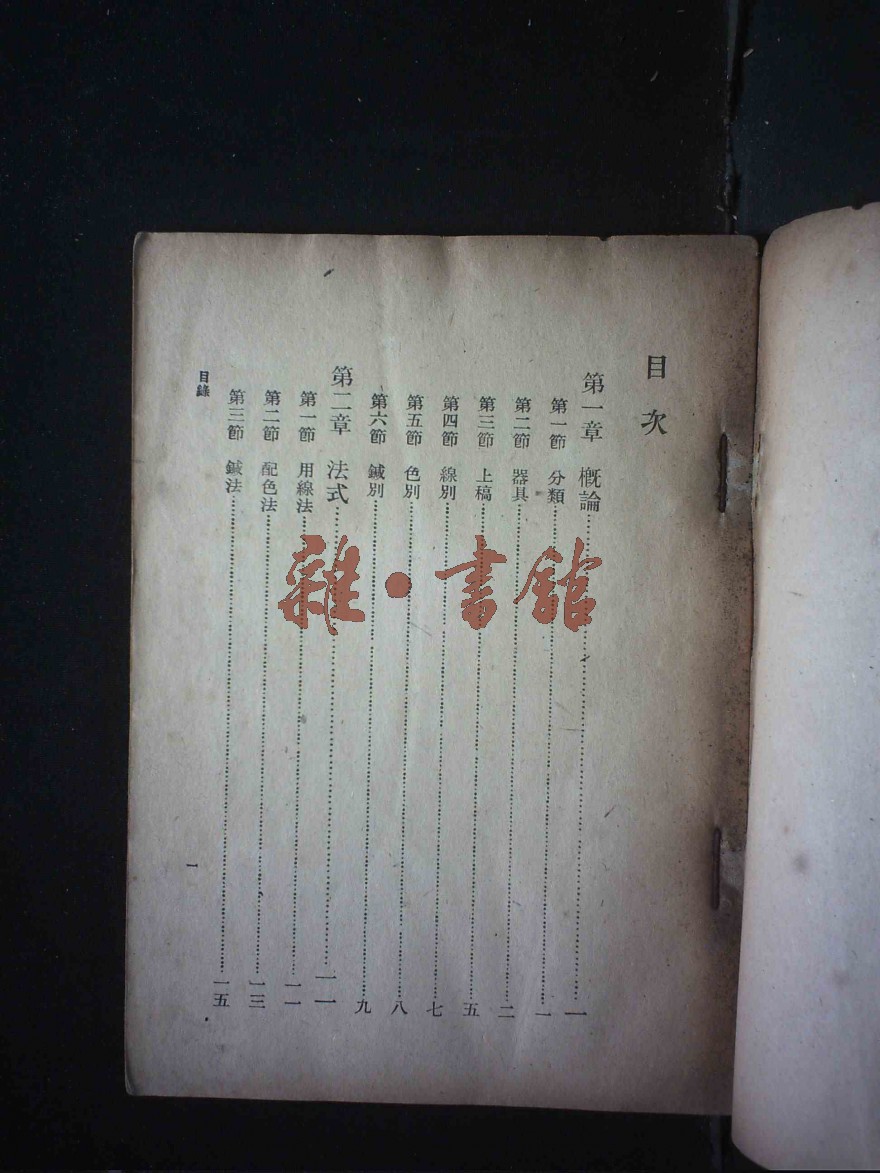 目次
第一章 概論……一
第一節 分類……一
第二節 器具……二
第三節 上稿……五
第四節 線別……七
第五節 色別……八
第六節 鍼別……九
第二章 法式……一一
第一節 用線法……一一
第二節 配色法……一三
第三節 鍼法……一五
目錄
一
雜·書館